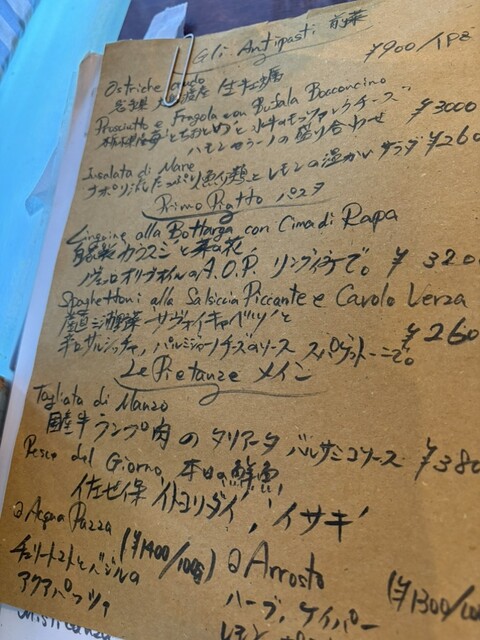 Gli Antipasti 前菜
Ostriche crudo ¥900/1Pz
産 生牡蠣
Prosciutto e Fragola con Bufala Bocconcino
とちおとめ と 水牛のモッツァレラチーズ ¥3000
ハモンセラーノの盛り合わせ
Insalata di Mare
ナポリ流 たっぷり魚介類とレモンの温かいサラダ ¥260
Primo Piatto パスタ
Linguine alla Bottarga con Cima di Rapa
自家製 カラスミと菜の花、
オリーブオイルのA.O.P. リングイネで。 ¥320
Spaghettoni alla Salsiccia Piccante e Cavolo Verza
産直 三浦野菜 サヴォイキャベツと ¥260
辛口サルシッチャ、パルミジャーノチーズのソース スパゲットーニで。
Le Pietanze メイン
Tagliata di Manzo
国産牛ランプ肉のタリアータ バルサミコソース ¥380
Pesce del Giorno 本日の鮮魚
佐世保 イトヨリダイ, イサキ
@ Acqua Pazza (¥1400/100g)
チェリートマトとバジルの
アクアパッツァ
@ Arrosto (¥1300/100
ハーブ, ケイパー
レモン